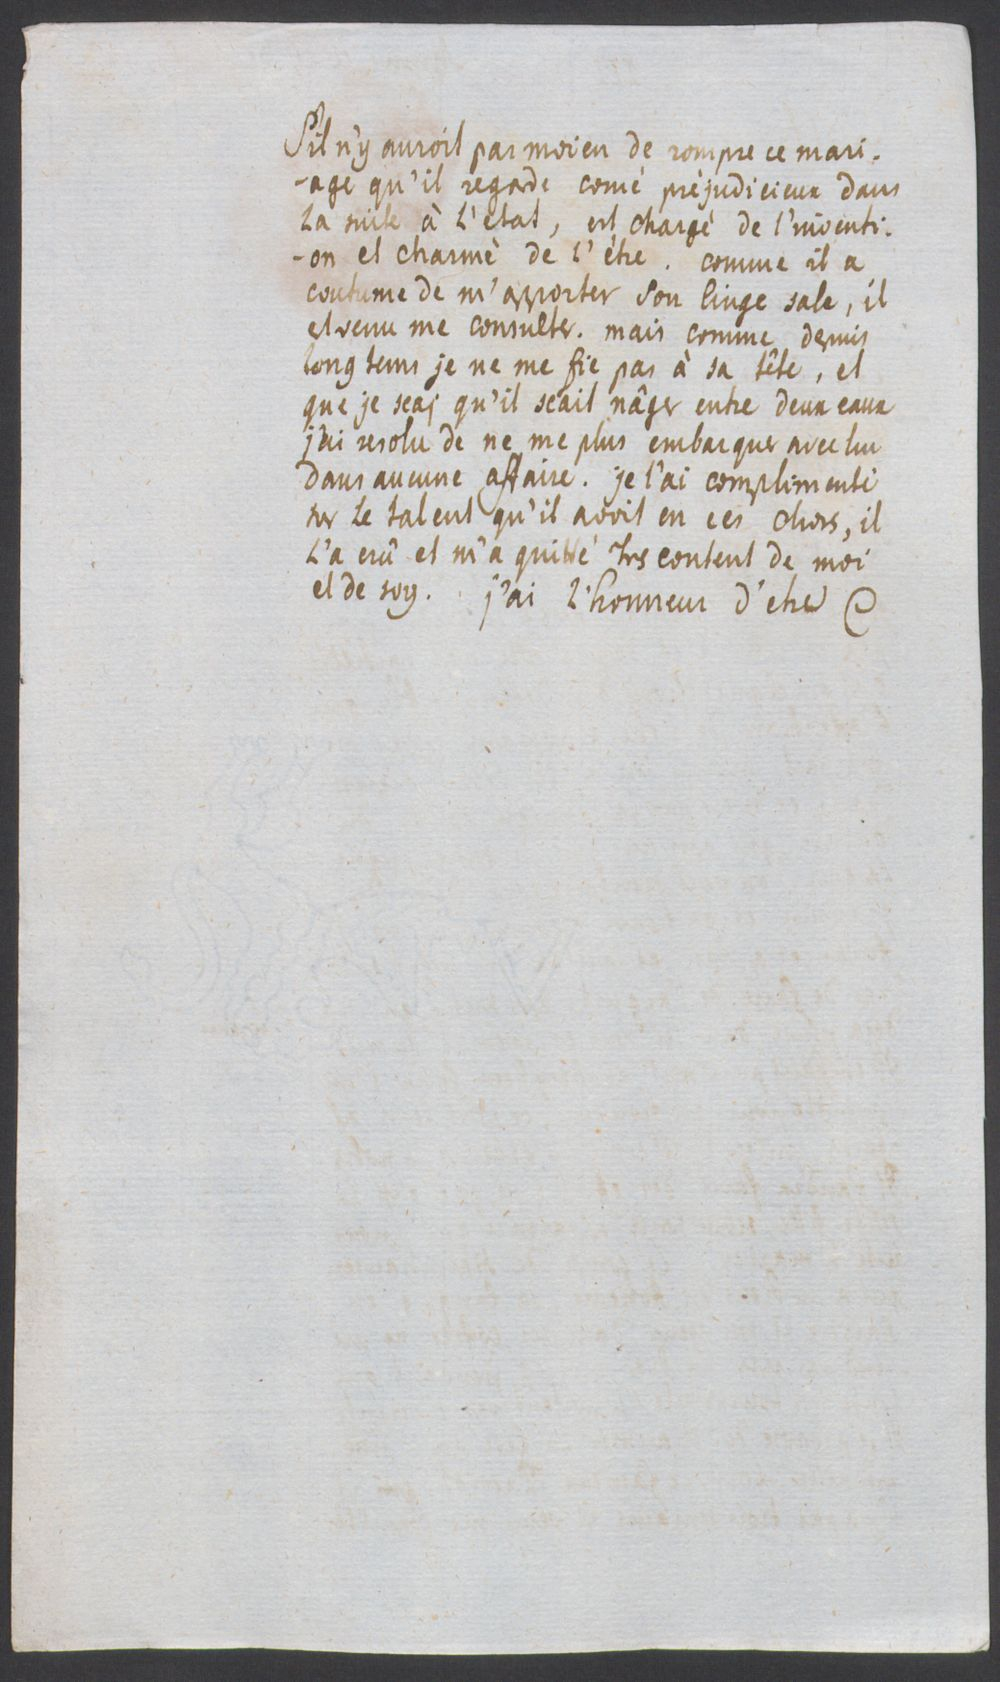 S'il n'y auroit pas moien de rompre ce mari-
-age qu'il regarde comé préjudicieux dans
La suite à L'état, est chargé de l'inventi-
-on et charmé de l'étre. comme il a
coutume de m'apporter Son linge sale, il
est venu me consulter. mais comme depuis
long tems je ne me fie pas à sa tête, et
que je scai qu'il scait nâger entre deux eaux
j'ai resolu de ne me plus embarquer avec lui
Dans aucune affaire. je l'ai complimenté
sur Le talent qu'il avoit en ces choses, il
L'a crû et m'a quitté tres content de moi
et de soy. j'ai L'honneur d'etre